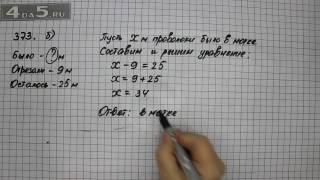 4da5.ru
373. б)
Было - ? м
Отрезали - 9 м
Осталось - 25 м
Пусть x м проволоки было в мотке
Составим и решим уравнение:
x - 9 = 25
x = 9 + 25
x = 34
Ответ: в мотке